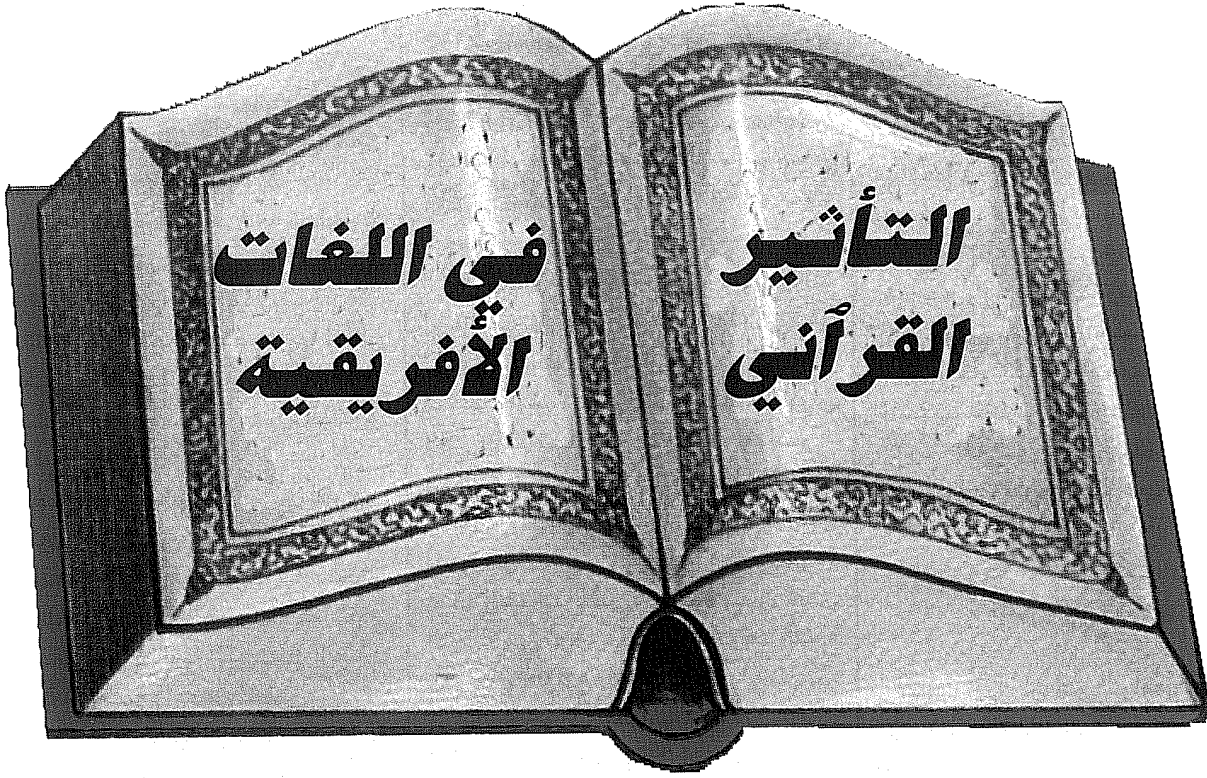 التأثير
القرآني
في اللغات
الأفريقية